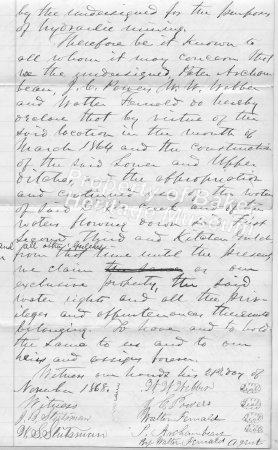 by the undersigned for the purpose
of hydraulic mining.
Therefore be it known to
all whom it may concern that
we the undersigned, Peter Archam-
beau, J. C. Powers, W. W. Webber
and Walter Fernald do hereby
declare that by virtue of the
said location in the month of
March 1864 and the construction
of the said Lower and Upper
ditches the appropriation
and continued use of the water
of said creek and of the
waters flowing down said First
Second Third and Kitchen gulch
and all other gulches
from that time until the present
we claim as our
exclusive property, the said
water rights and all the priv-
ileges and appurtenances thereunto
belonging. To have and to hold
the same to us and to our
heirs and assigns forever.
Witness our hands this 21st day of
November 1868.
Witness
W. W. Webber
J. C. Powers
Walter Fernald
P. Archambeau
By Walter Fernald Agent
Property of Baker